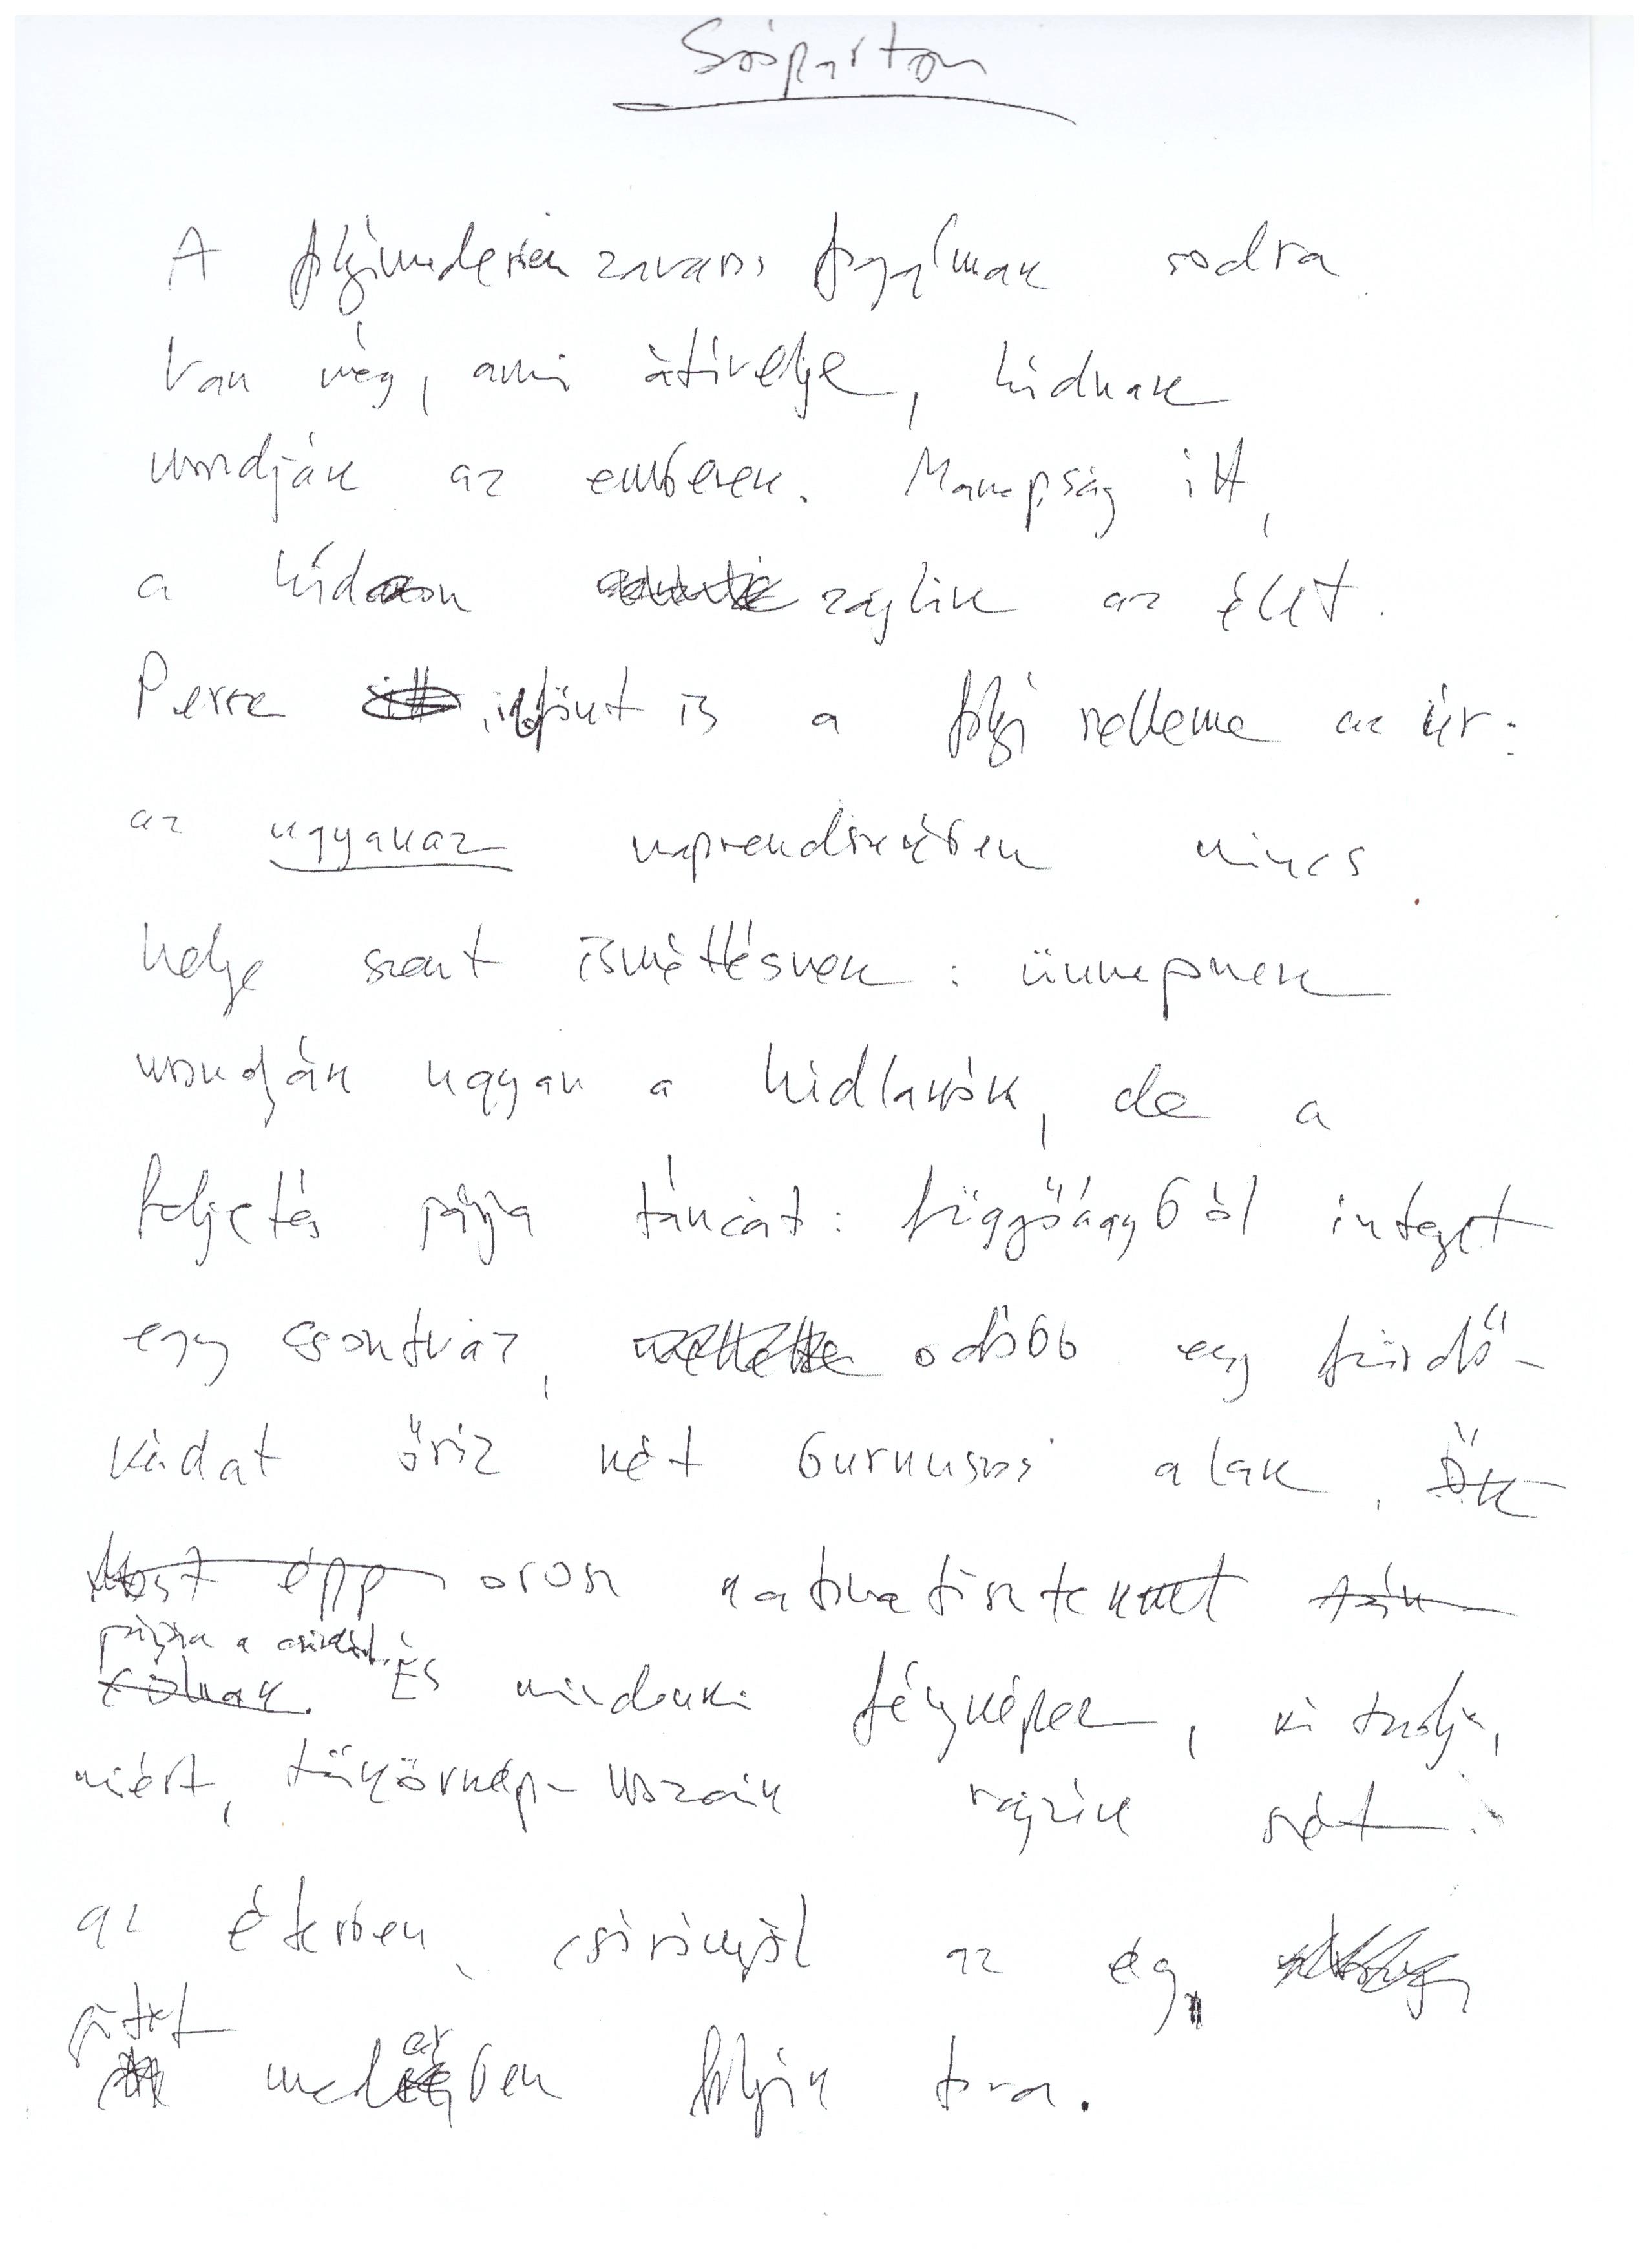 Sósparton
A folyómederben zavaros fogalmak sodra.
Van még, ami átívelje, hídnak
mondják az emberek. Manapság itt,
a hídon zajlik az élet.
Persze időnt is a folyó szelleme az úr:
az ugyanaz naprendszerében nincs
helye szent ismétlésnek: ünnepnek
mondják ugyan a hídlakók, de a
felejtés járja táncát: függőágyból integet
egy csontváz, odébb egy fürdő-
kádat őriz két burnuszos alak. Ők
Most épp orosz katonatisztek
járja a
És mindenki fényképez, ki tudja,
miért, tükörkép-mozaik rajzik szét
az éterben, csörömpöl az ég,
sötét
mederben folyik tova.